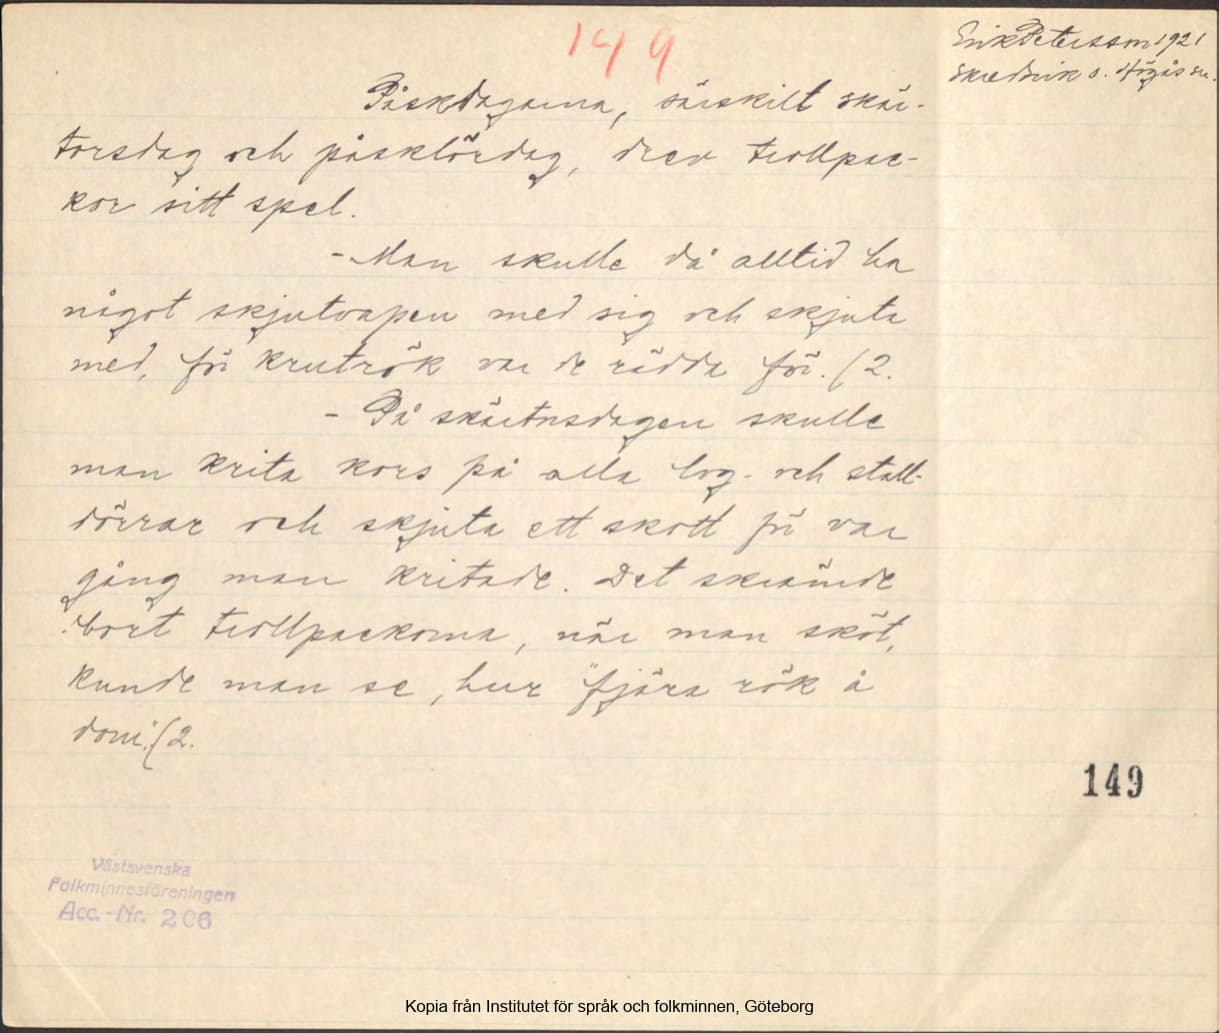 149
Erik Petersson 1921
Skredsvik o. Högås sn.
Påskdagarna, särskilt skär-
torsdag och påsklördag, drev trollpac-
kor sitt spel.
- Man skulle då alltid ha
något skjutvapen med sig och skjuta
med, för krutrök var de rädda för. (2.
- På skärtorsdagen skulle
man krita kors på alla log- och stall-
dörrar och skjuta ett skott för var
gång man kritade. Det skrämde
bort trollpackorna, när man sköt,
kunde man se, hur "fjära rök å
dom". (2.
149
Västsvenska
Folkminnesföreningen
Acc.-Nr. 206
Kopia från Institutet för språk och folkminnen, Göteborg